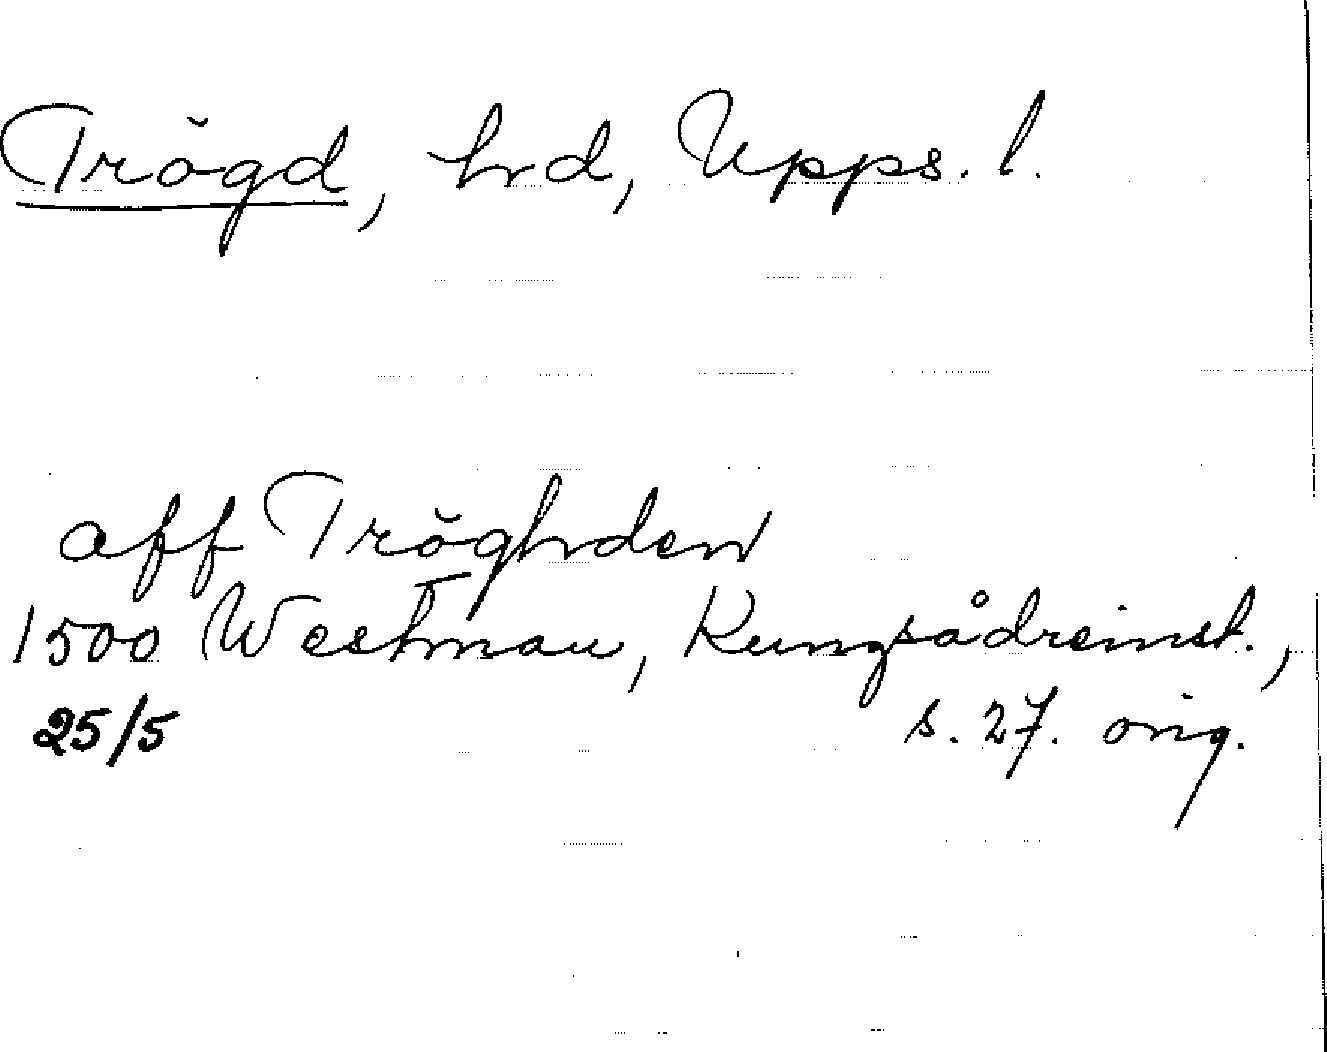 Trögd, hrd, Upps. l.
aff Tröghden
1500 Westman, Kungsådreinst.,
25/5 s. 27. orig.